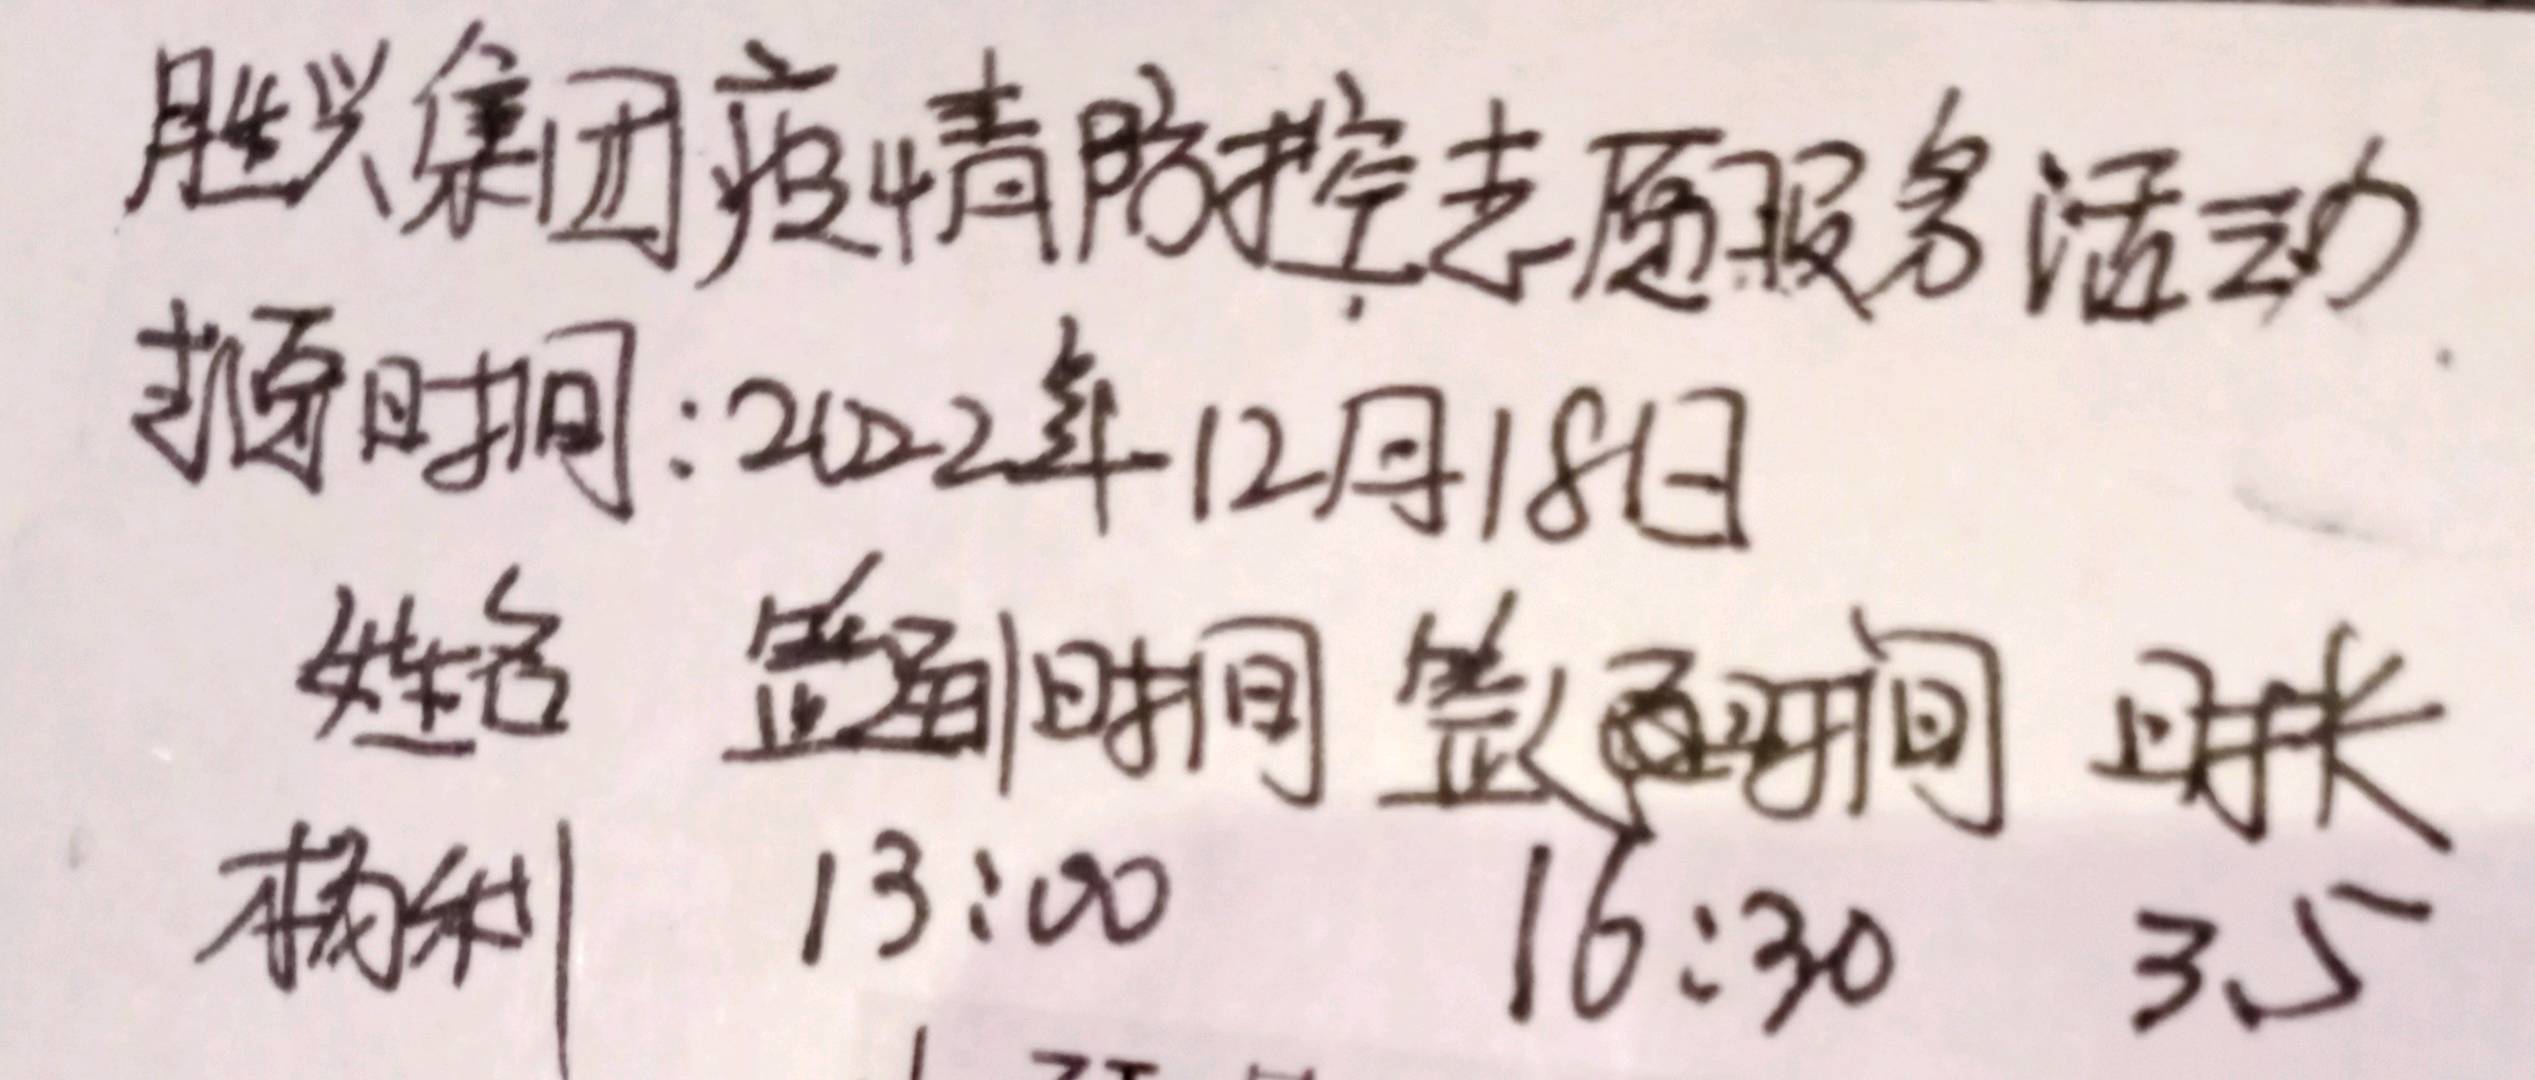 胜兴集团疫情防控志愿服务活动
时间:2022年12月18日
姓名 签到时间 签退时间 时长
杨利 13:00 16:30 3.5